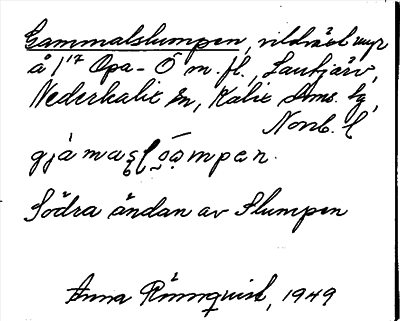 Gammalslumpen, vildväxt myr
å 1/17 Opa-Ö m. fl., Lantjärv,
Nederkalix sn, Kalix tg,
Norrb. l
gjàmaşl o̯a̯mpen.
Södra ändan av Slumpen
Anna Rönnquist, 1949